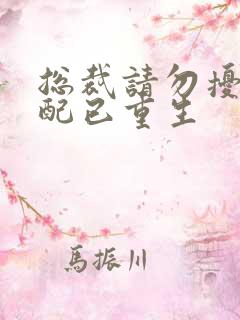 总裁請勿擾
配已重生
馬振川